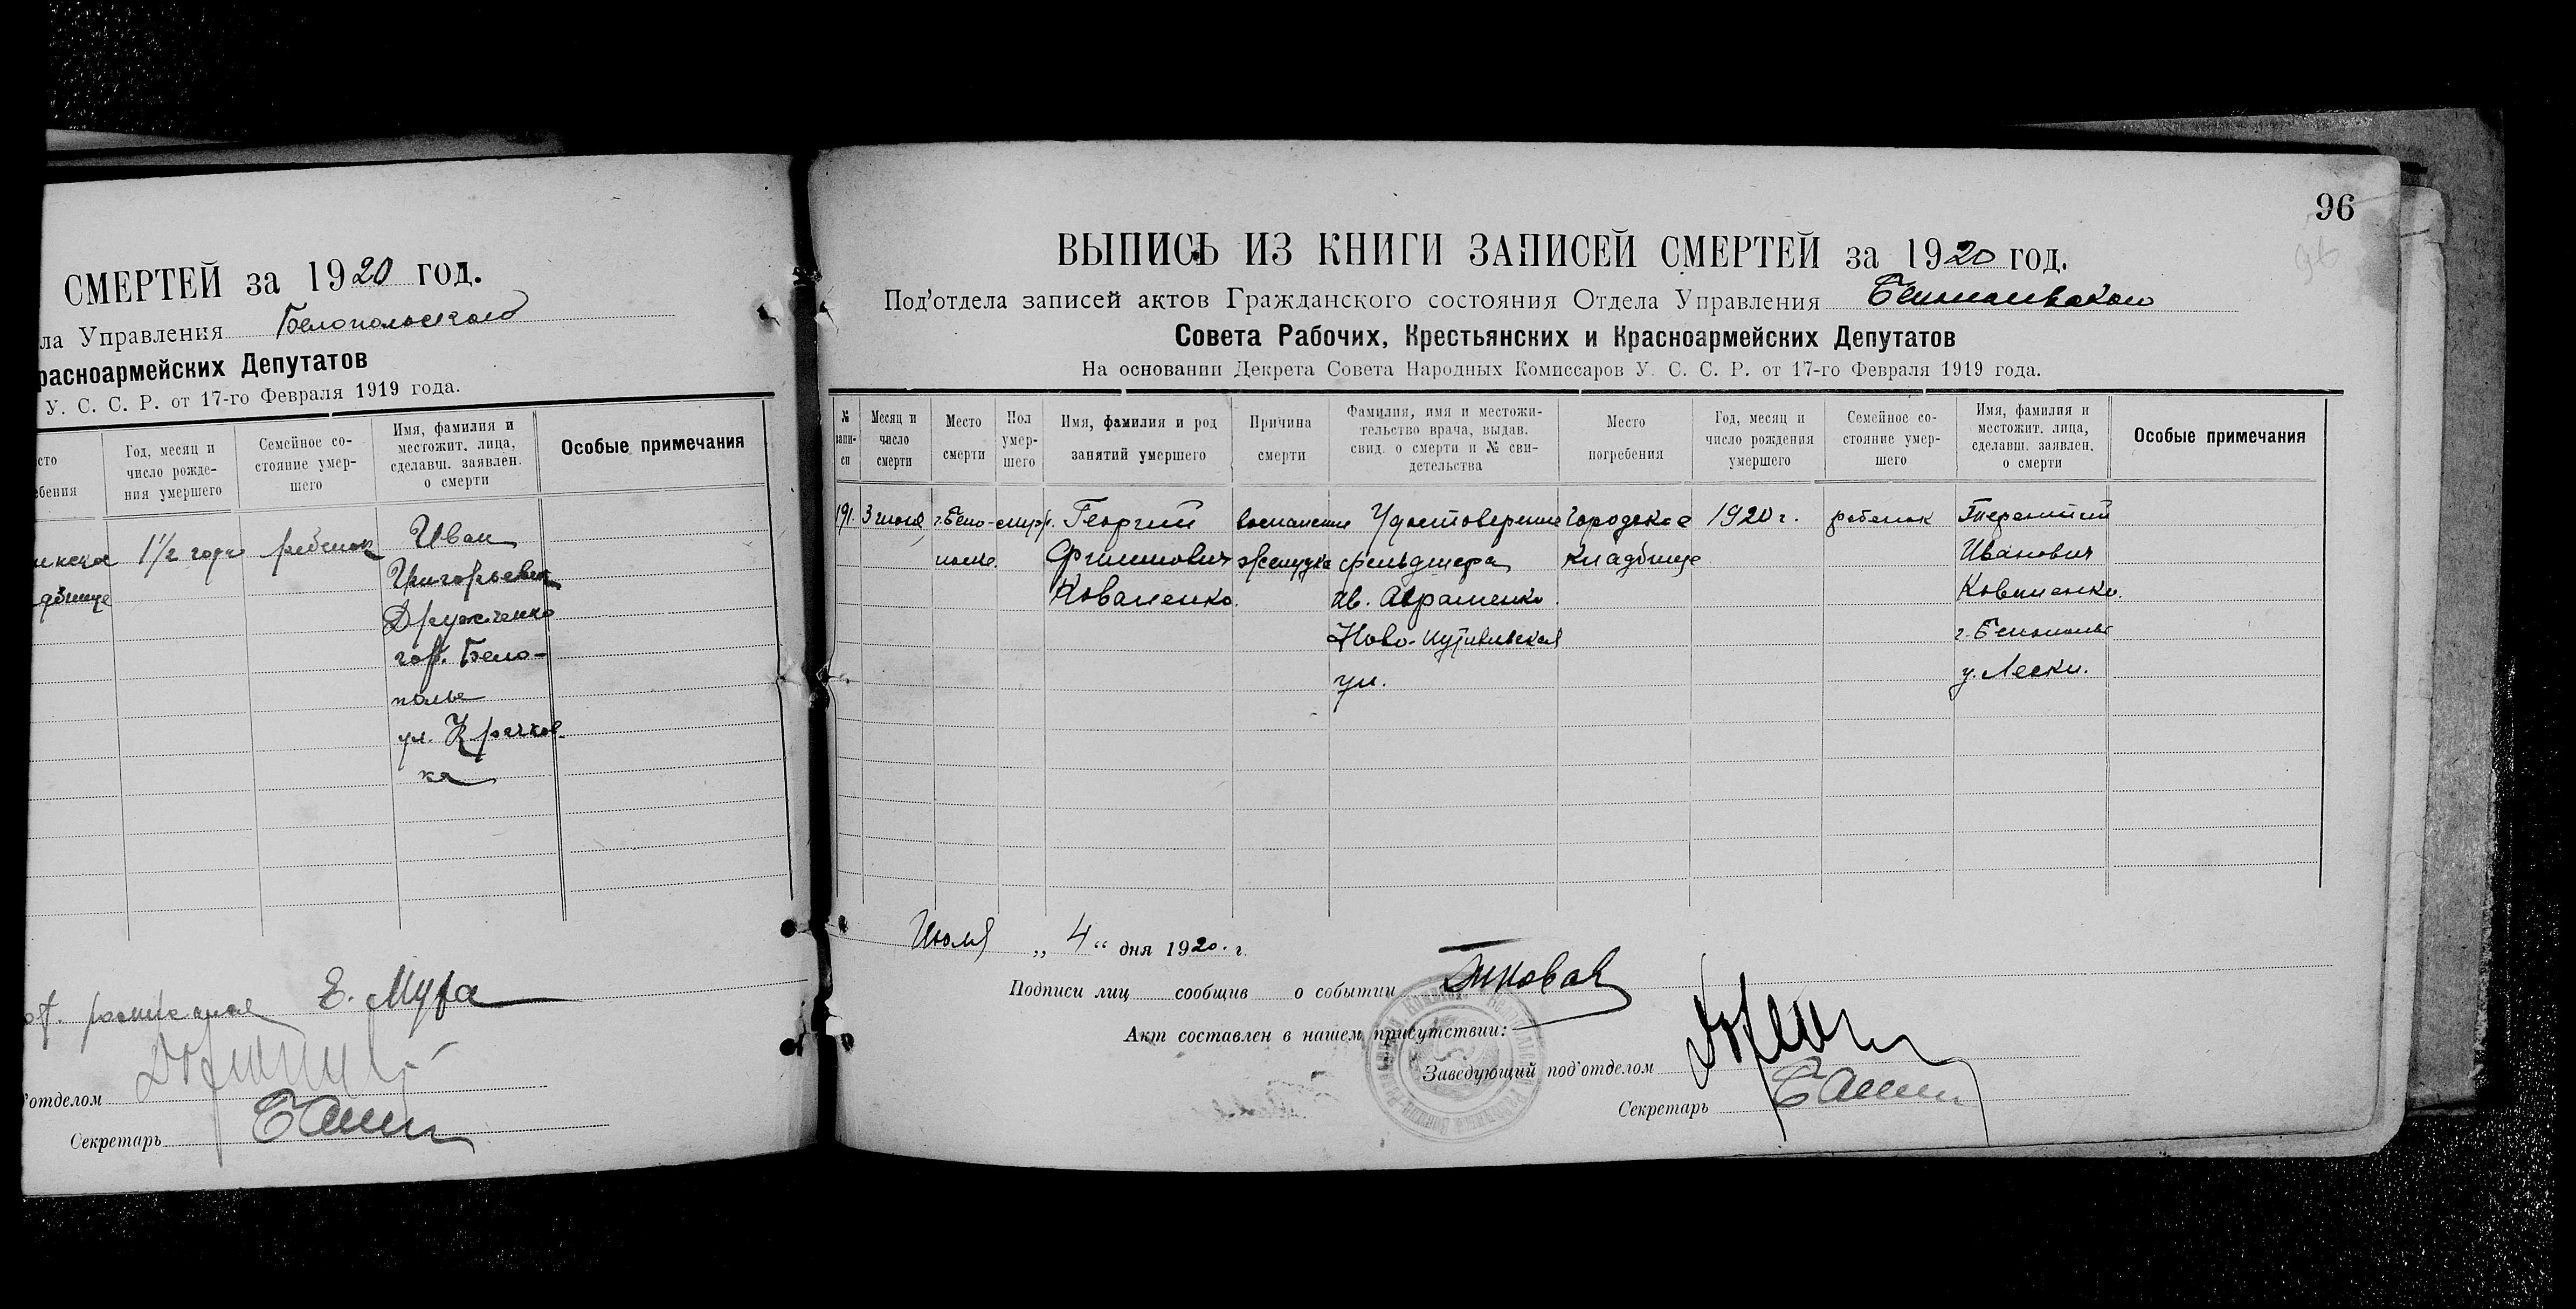 СМЕРТЕЙ за 1920 год.
ла Управления Белопольского
расноармейских Депутатов
У. С. С. Р. от 17-го Февраля 1919 года.
сто
ебения
Год, месяц и
число рожде-
ния умершего
Семейное со-
стояние умер-
шего
Имя, фамилия и
местожит. лица,
сделавш. заявлен.
о смерти
Особые примечания
1½ года
ребенок
Иван
Григорьевич
гор. Бело-
полье
ул. Крачков-
ка
Е. Мура
отделом
Секретарь
96
96
ВЫПИСЬ ИЗ КНИГИ ЗАПИСЕЙ СМЕРТЕЙ за 1920 год.
Под'отдела записей актов Гражданского состояния Отдела Управления Белопольского
Совета Рабочих, Крестьянских и Красноармейских Депутатов
На основании Декрета Совета Народных Комиссаров У. С. С. Р. от 17-го Февраля 1919 года.
№
запи-
си
Месяц и
число
смерти
Место
смерти
Пол
умер-
шего
Имя, фамилия и род
занятий умершего
Причина
смерти
Фамилия, имя и местожи-
тельство врача, выдав.
свид. о смерти и № сви-
детельства
Место
погребения
Год, месяц и
число рождения
умершего
Семейное со-
стояние умер-
шего
Имя, фамилия и
местожит. лица,
сделавш. заявлен.
о смерти
Особые примечания
191.
3 июля
г. Бело-
полье.
Георгий
Коваленко.
воспаление
желудка
Удостоверение
фельдшера
Ив. Авраменко
Ново-Путивльская
ул.
Городское
кладбище
1920 г.
ребенок
Терентий
Иванович
Коваленко.
г. Белополье
у. Лески.
Июля „ 4 “ дня 1920. г.
Подписи лиц сообщив о событии
Акт составлен в нашем присутствии:
Заведующий под'отделом
Секретарь